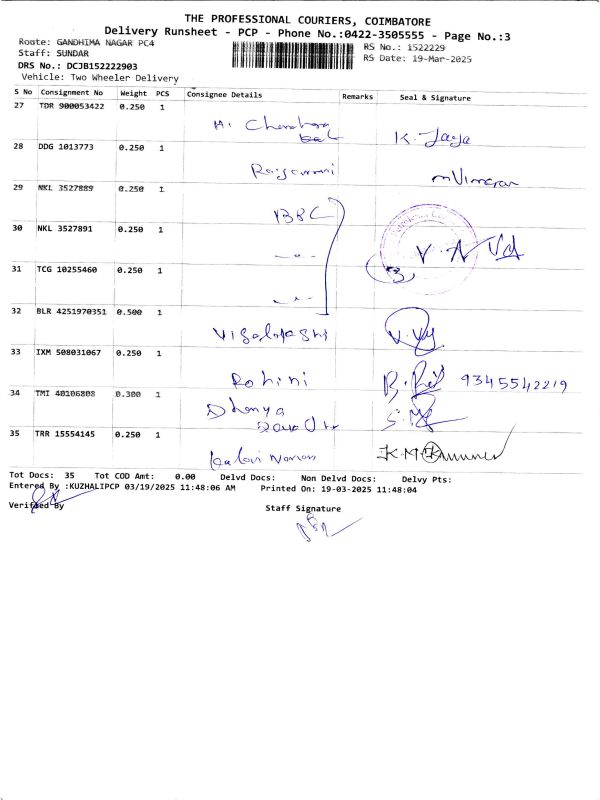 THE PROFESSIONAL COURIERS, COIMBATORE
Delivery Runsheet - PCP - Phone No.:0422-3505555 - Page No.:3
Route: GANDHIMA NAGAR PC4
RS No.: 1522229
Staff: SUNDAR
RS Date: 19-Mar-2025
DRS No.: DCJB152222903
Vehicle: Two Wheeler Delivery
S No Consignment No Weight PCS Consignee Details Remarks Seal & Signature
27 TDR 900053422 0.250 1
K. Jaya
28 DDG 1013773 0.250 1
29 NKL 3527889 0.250 1
BBC
30 NKL 3527891 0.250 1
31 TCG 10255460 0.250 1
32 BLR 4251970351 0.500 1
33 IXM 508031067 0.250 1
Rohini 9345542219
34 TMI 40106808 0.300 1
Dhanya
35 TRR 15554145 0.250 1
Tot Docs: 35 Tot COD Amt: 0.00 Delvd Docs: Non Delvd Docs: Delvy Pts:
Entered By :KUZHALIPCP 03/19/2025 11:48:06 AM Printed On: 19-03-2025 11:48:04
Verified By
Staff Signature